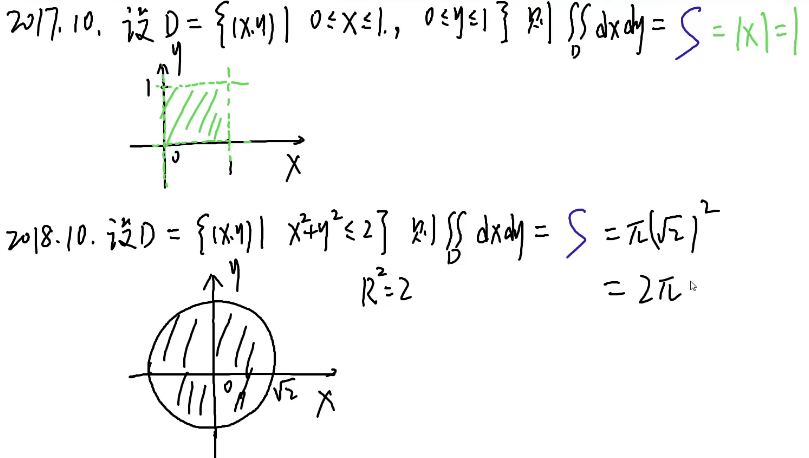 2017.10. 设 D = {(x.y) | 0≤x≤1., 0≤y≤1} 则 ∬_D dxdy = S = 1×1 = 1
y
1
0 1 x
2018.10. 设 D = {(x.y) | x²+y²≤2} 则 ∬_D dxdy = S = π(√2)²
y R²=2 = 2π
0 √2 x